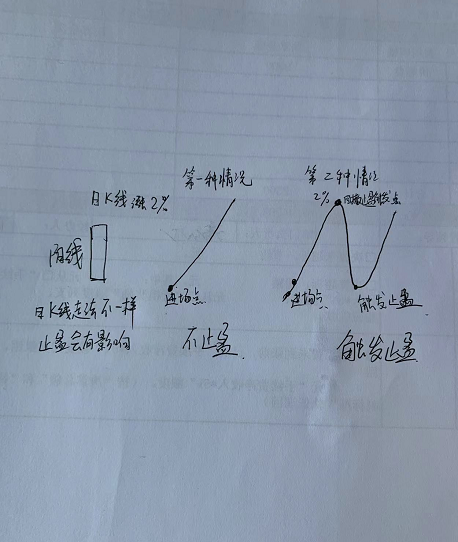 第一种情况
第二种情况
日K线涨2%
2%
阳线
进场点
进场点
触发止盈
日K线走法不一样
止盈会有影响
不止盈
触发止盈